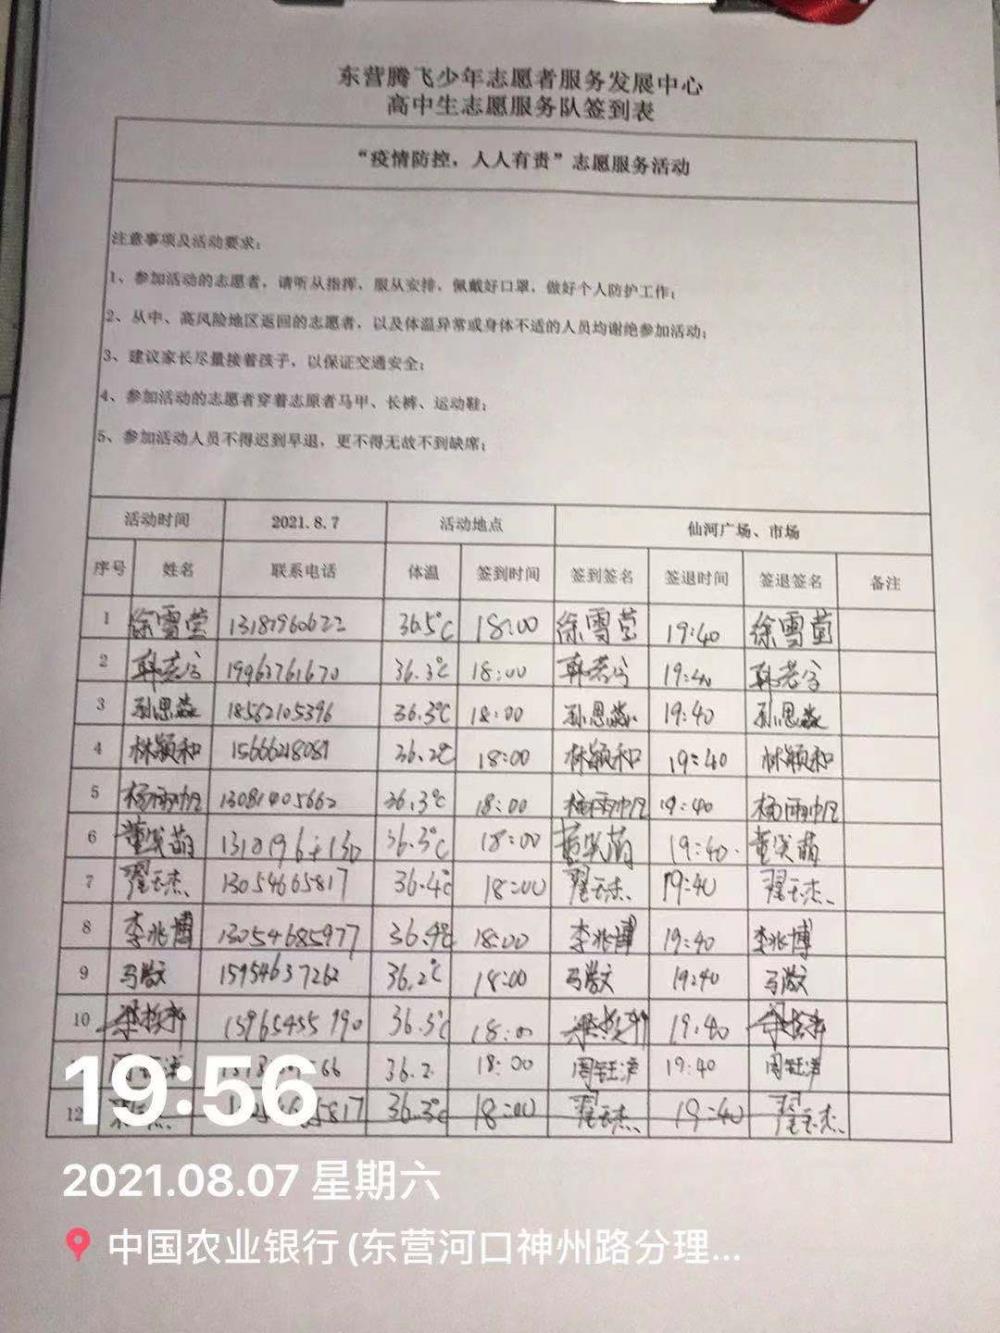 东营腾飞少年志愿者服务发展中心
高中生志愿服务队签到表
“疫情防控，人人有责”志愿服务活动
注意事项及活动要求：
1、参加活动的志愿者，请听从指挥，服从安排，佩戴好口罩，做好个人防护工作；
2、从中、高风险地区返回的志愿者，以及体温异常或身体不适的人员均谢绝参加活动；
3、建议家长尽量接着孩子，以保证交通安全；
4、参加活动的志愿者穿着志原者马甲、长裤、运动鞋；
5、参加活动人员不得迟到早退，更不得无故不到缺席；
活动时间 2021.8.7 活动地点 仙河广场、市场
序号 姓名 联系电话 体温 签到时间 签到签名 签退时间 签退签名 备注
1 徐雪莹 13187960622 36.5℃ 18:00 徐雪莹 19:40 徐雪莹
2 19963761670 36.3℃ 18:00 19:40
3 18562105396 36.3℃ 18:00 19:40
4 林颖和 15666218081 36.2℃ 18:00 林颖和 19:40 林颖和
5 杨雨帆 13081405662 36.3℃ 18:00 杨雨帆 19:40 杨雨帆
6 36.3℃ 18:00 19:40
7 翟天杰 13054665817 36.4℃ 18:00 翟天杰 19:40 翟天杰
8 李兆博 13054685977 18:00 李兆博 19:40 李兆博
9 15954637262 36.2℃ 18:00 19:40
10 15965455190 36.3℃ 18:00 19:40
66 36.2 18:00 周钰洋 19:40 周钰洋
12 5817 36.3℃ 18:00 翟天杰 19:40 翟天杰
19:56
2021.08.07 星期六
中国农业银行(东营河口神州路分理...